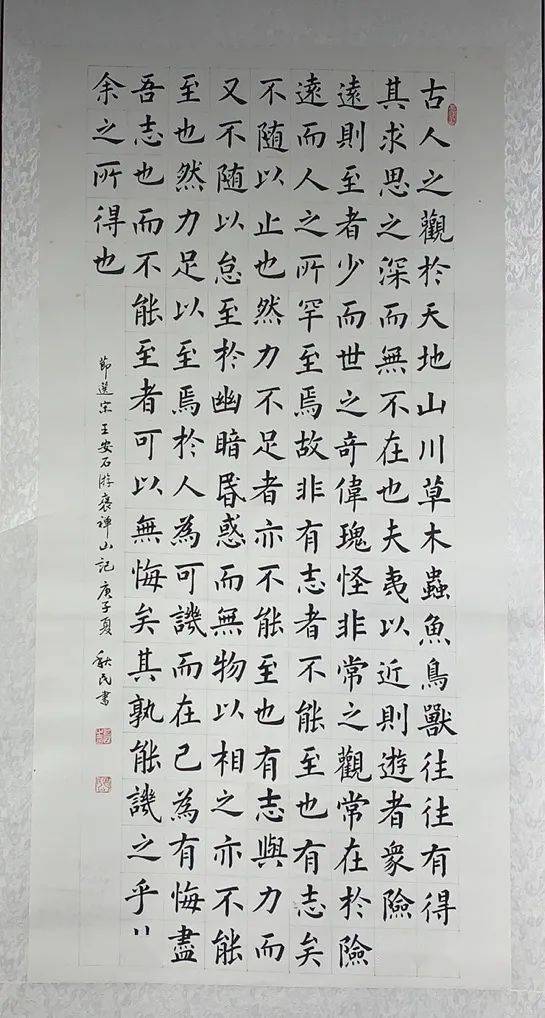 古人之觀於天地山川草木蟲魚鳥獸往往有得
其求思之深而無不在也夫夷以近則遊者衆險
遠則至者少而世之奇偉瑰怪非常之觀常在於險
遠而人之所罕至焉故非有志者不能至也有志矣
不随以止也然力不足者亦不能至也有志與力而
又不随以怠至於幽暗昬惑而無物以相之亦不能
至也然力足以至焉於人為可譏而在己為有悔盡
吾志也而不能至者可以無悔矣其孰能譏之乎
余之所得也
節選宋王安石游褒禅山記庚子夏民書